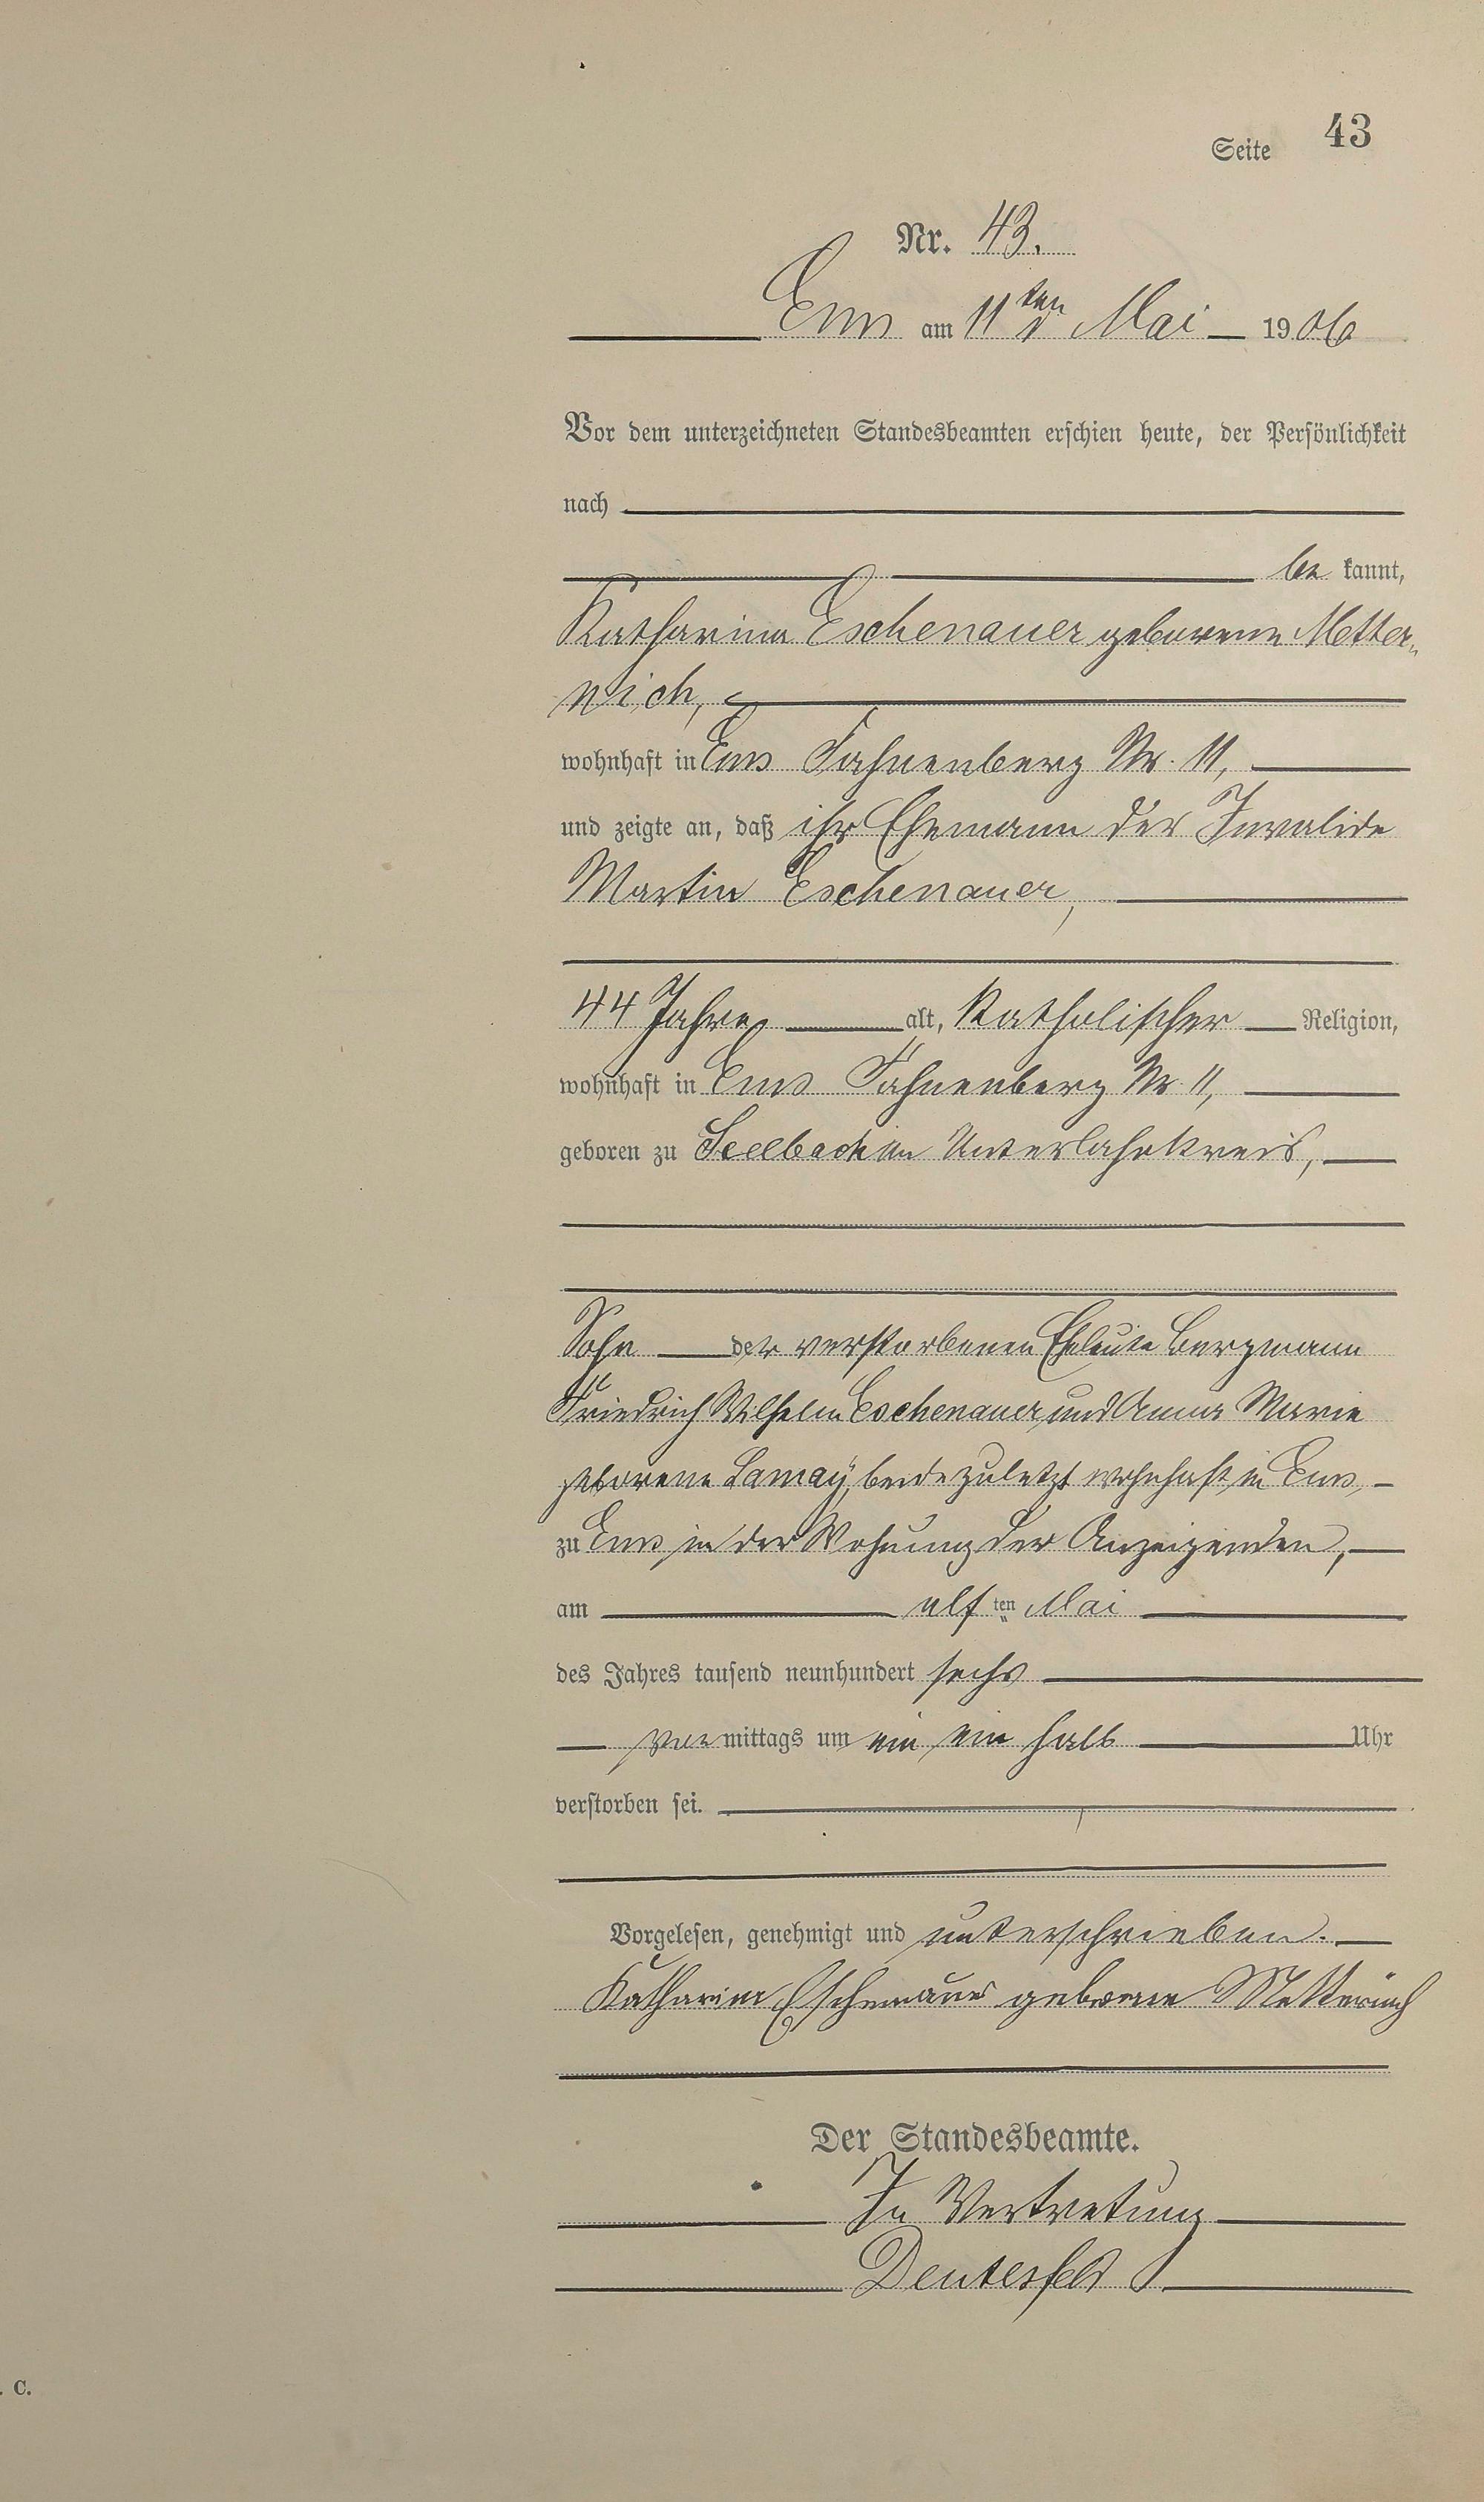 Seite 43
Nr. 43.
Ems am 11ten Mai 1906
Vor dem unterzeichneten Standesbeamten erschien heute, der Persönlichkeit
nach
be kannt,
Katharina Eschenauer geborene Metter„
nich,
wohnhaft in Ems Fahnenberg Nr. 11,
und zeigte an, daß ihr Ehemann der Invalide
Martin Eschenauer,
44 Jahre alt, Katholischer Religion,
wohnhaft in Ems Fahnenberg Nr. 11,
geboren zu Seelbach im Unterlahnkreis,
Sohn der verstorbenen Eheleute Bergmann
Friedrich Wilhelm Eschenauer und Anna Marie
geborene Lamaÿ, beide zuletzt wohnhaft in Ems,
zu Ems, in der Wohnung der Anzeigenden,
am elf ten Mai
des Jahres tausend neunhundert sechs
vor mittags um ein ein halb Uhr
verstorben sei.
Vorgelesen, genehmigt und unterschrieben.
Katharina Eschenauer geborene Metternich
Der Standesbeamte.
In Vertretung
Deutesfeld
. C.